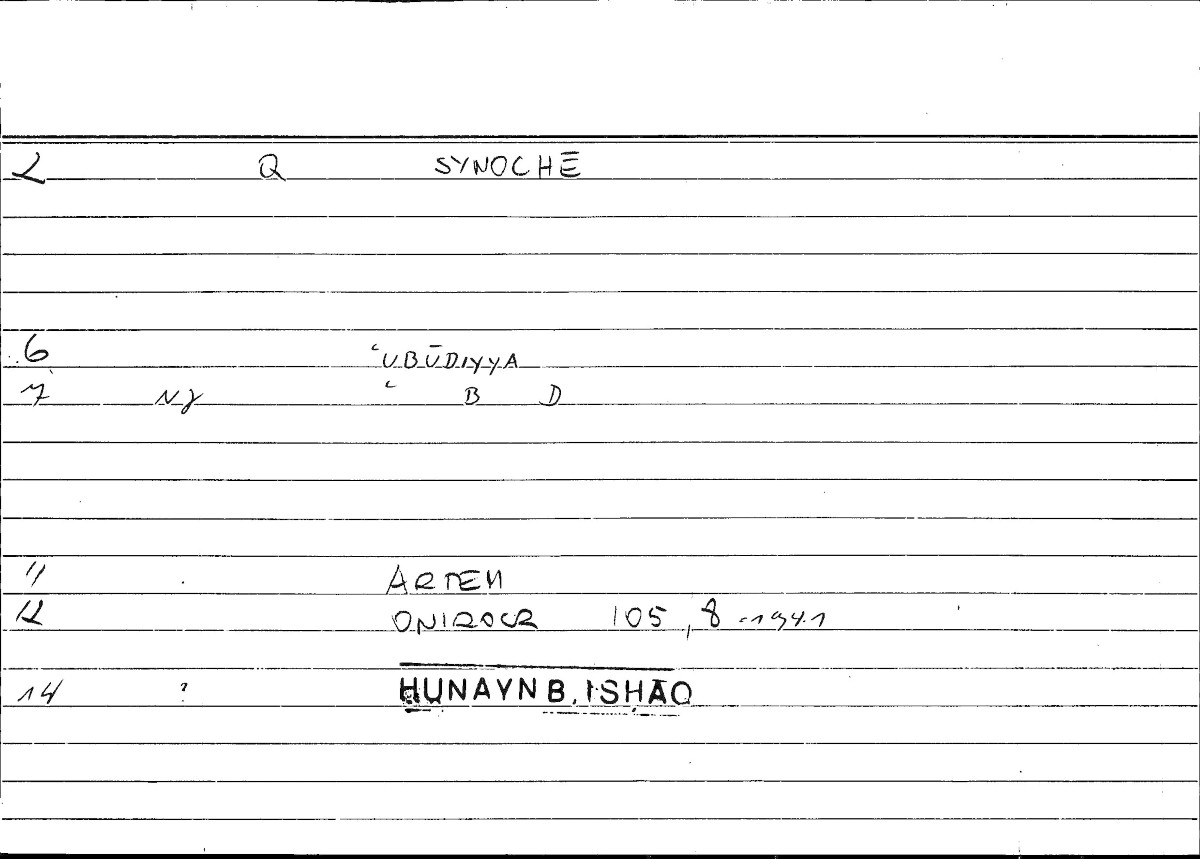 2 Q SYNOCHĒ
6 ʿUBŪDIYYA
7 Nʒ ʿ B D
11 ARTEM
12 ONIROCR 105,8 -194.1
14 ? HUNAYN B. ISHĀQ